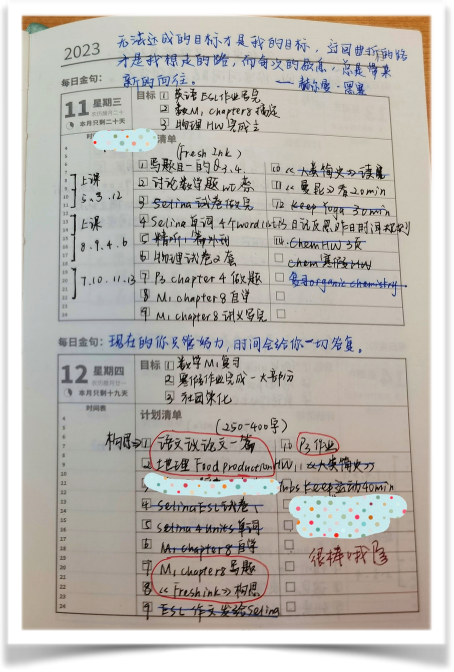 2023
无法达成的目标才是我的目标，迂回曲折的路
才是我想走的路，而每次的歇息，总是带来
新的向往。
——赫尔曼·黑塞
每日金句：
11 星期三
农历腊月二十
本月只剩二十天
目标 1 英语ESL作业写完
2 数M1 chapter8搞定
3 物理HW完成
计划清单
(Fresh ink)
上课
5、3、12
上课
8、9、4、6
7、10、11、13
1 写题目一的Q3、4.
2 讨论数学题
3 Selina试卷做完
4 Selina单词4个wordlist
5 精听1篇
6 物理试卷2套
7 P3 chapter 4做题
8 M1 chapter 8自学
9 M1 chapter 8讲义写完
10 《人类简史》读
11 《曼昆》看20min
12 Keep Yoga 30min
13 日记反思昨日时间
14 Chem HW 3页
Chem寒假HW
organic chemistry
每日金句：现在的你只管努力，时间会给你一切答复。
12 星期四
农历腊月廿一
本月只剩十九天
时间表
目标 1 数学M1复习
2 寒假作业完成一大部分
3
计划清单
(250-400字)
构思→ 1 语文议论文一篇
2 地理Food production HW
4 Selina ESL试卷1
5 Selina 4 units单词
6 M1 chapter 8自学
7 M1 chapter 8写题
8 《Fresh ink》构思
9 ESL作文发给Selina
10 P3作业
11 《人类简史》
Keep运动40min
很棒哦